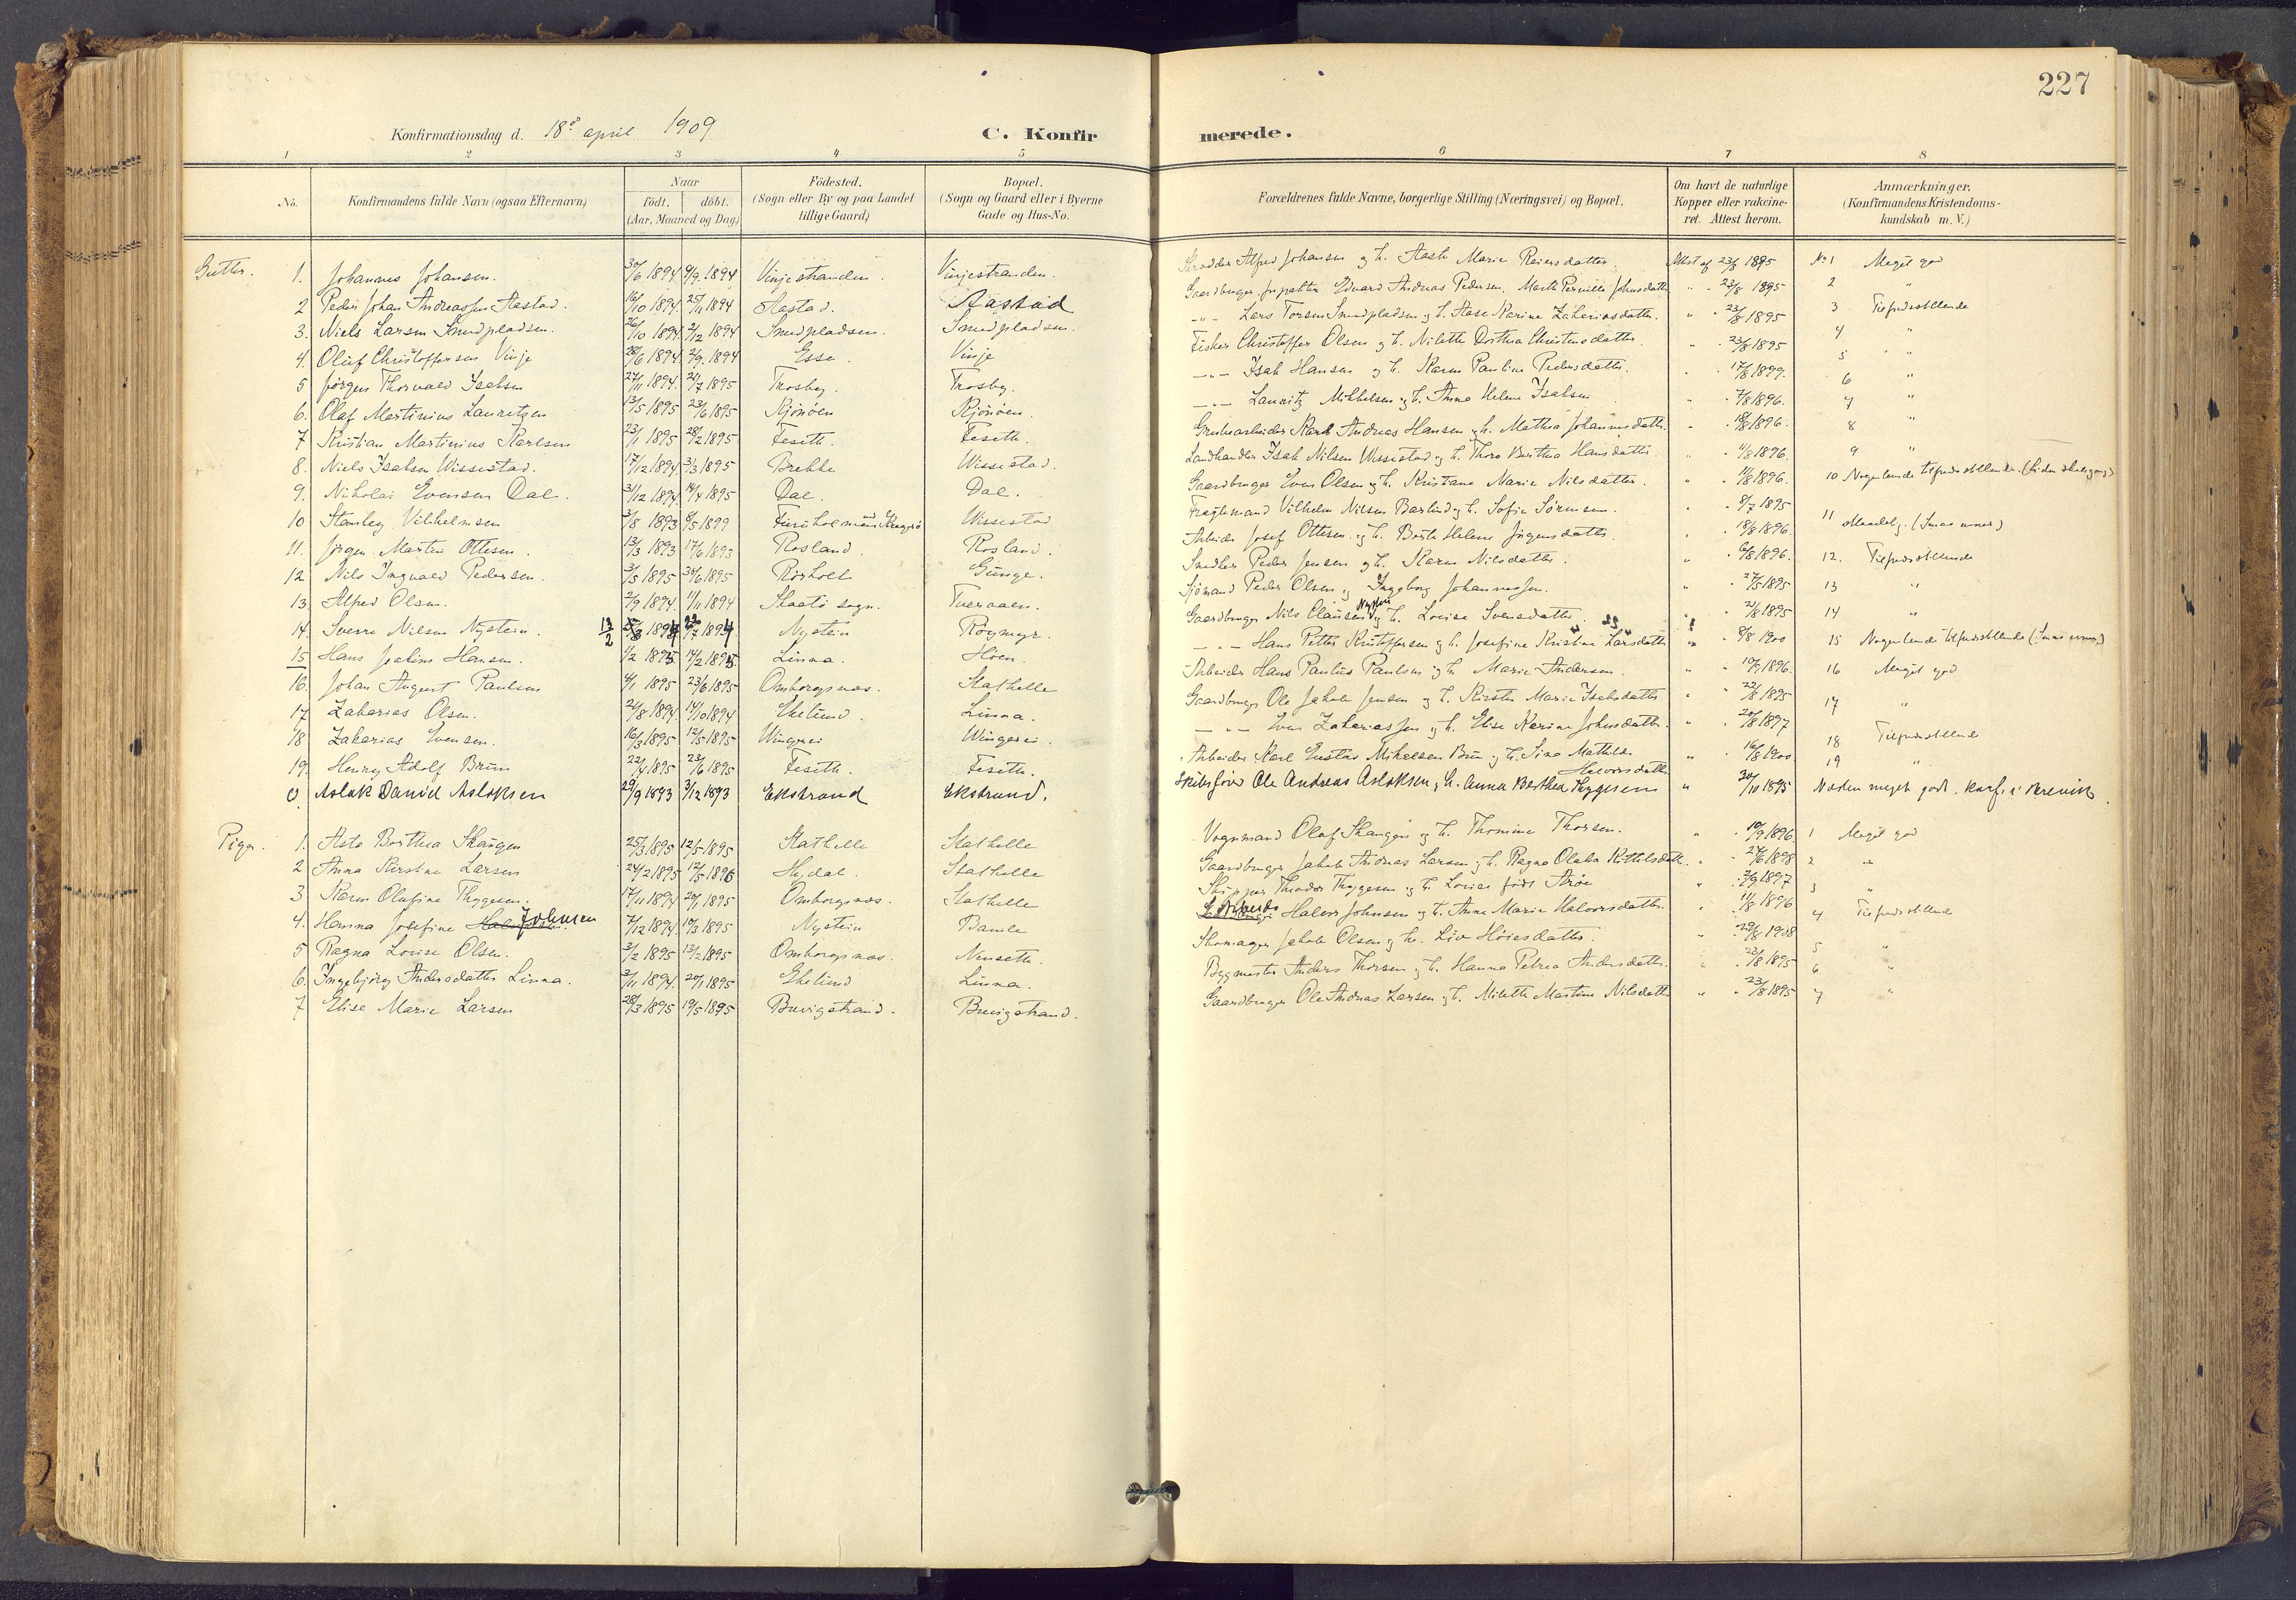 227
Konfirmationsdag d. 18de april 1909 C. Konfirmerede.
1 2 3 4 5 6 7 8
No. Konfirmandens fulde Navn (ogsaa Efternavn) Naar födt. döbt. (Aar, Maaned og Dag) Födested. (Sogn eller By og paa Landet tillige Gaard) Bopæl. (Sogn og Gaard eller i Byerne Gade og Hus-No. Forældrenes fulde Navne, borgerlige Stilling (Næringsvei) og Bopæl. Om havt de naturlige Kopper eller vakcineret. Attest herom. Anmærkninger. (Konfirmandens Kristendomskundskab m. V.)
Gutter. 1. Johannes Johansen. 30/6 1894. 9/9. 1894 Vinjestranden. Vinjestranden. Skrædder Alfred Johansen og H. Aaste Marie Reiersdatter. Attest af 23/8 1895 No 1 Meget god
2 Peder Johan Andreassen Aastad. 16/10 1894. 25/11 1894 Aastad. Aastad Gaardbruger, Edvard Andreas Pedersen, Marthe Pernille Johnsdatter " " 23/8 1895 2 "
3. Niels Larsen Smedpladsen. 26/10 1894. 2/12 1894 Smedpladsen. Smedpladsen. - " - Lars Torsen Smedpladsen og H. Aase Karine Zakariasdatter. " " 23/8 1895 3 Tilfredsstillende
4. Oluf Christoffersen Vinje 28/6 1894. 2/9. 1894 Esse. Vinje Fisker Christoffer Olsen og H. Nilette Dorthea Christensdatter. " " 23/8 1895 4 "
5 Jørgen Thorvald Isaksen 27/11 1894. 21/7 1895 Trosby. Trosby. - " - Isak Hansen og H. Karen Pauline Pedersdatter. " " 17/8 1899. 5 "
6. Olaf Martinius Lauritzen 13/5 1895 23/6 1895 Kjönöen Kjönöen. - " - Lauritz Mikkelsen og H. Anna Helene Isaksen " " 7/8 1896. 6 "
7 Kristian Martinius Karlsen 23/1 1895 28/2 1895 Feseth. Feseth. Grubearbeider Karl Andreas Hansen og H. Mathea Johannesdatter. " " 18/8 1896. 7 "
8. Niels Isaksen Wissestad. 17/12 1894 3/3 1895 Brekke Wissestad. Landhandler Isak Nilsen Wissestad og H. Thora Berthea Hansdatter. " " 11/8 1896. 8 "
9. Nikolai Evensen Dal. 31/12 1894. 14/4 1895 Dal. Dal. Gaardbruger Even Olsen og H. Kristiane Marie Nilsdatter. " " 11/8 1896. 9 "
10 Stanley Vilhelmsen 3/8 1893 8/5 1899 Furuholmen Kragerö Wissestad Fragtemand Vilhelm Nilsen Barlind og H. Sofie Sørensen. " " 8/7 1895 10 Nogenlunde tilfredsstillende.
11. Jørgen Martin Ottesen. 13/3 1893 17/6 1893 Rosland. Rosland. Arbeider Josef Ottesen og H. Berte Helene Jörgensdatter. " " 18/8 1896. 11 Maadelig. (Smaa evner)
12 Nils Ingvald Pedersen. 3/5 1895 30/6 1895 Rörholt Gunge. Snedker Peder Jensen og H. Karen Nilsdatter. " " 6/8 1896. 12. Tilfredsstillende
13. Alfred Olsen. 2/9 1894. 11/11 1894 Skaatö sogn. Tueraaen. Sjömand Peder Olsen og Ingeborg Johannessen. " " 27/5 1895 13 "
14. Sverre Nilsen Nystein. 13/2 1894 22/7 1894 Nystein Röymyr. Gaardbruger Nils Clausen Nystein og H. Louise Svensdatter. " " 21/8 1895 14 "
15 Hans Joakim Hansen. 1/2 1895. 14/2 1895 Linna. Höen. - " - Hans Petter Kristoffersen og H. Josefine Kristine Larsdatter " " 8/8 1900 15 Nogenlunde tilfredsstillende (Smaa evner)
16. Johan August Paulsen 4/1 1895 23/6 1895 Omborgsnes. Stathelle Arbeider Hans Paulus Paulsen og H. Marie Andersen. " " 10/9 1896. 16 Meget god
17 Zakarias Olsen. 21/8 1894. 14/10 1894 Ekelund. Linna. Gaardbruger Ole Jakob Jensen og H. Kirstin Marie Isaksdatter " " 22/8 1895 17 "
18 Zakarias Evensen. 16/3 1895 12/5 1895 Wingerei Wingerei. - " - Even Zakariassen og H. Elise Karine Johnsdatter. " " 20/8 1897 18 Tilfredsstillende
19. Henry Adolf Brun 22/4 1895 23/6 1895 Feseth. Feseth. Arbeider Karl Gustav Mikkelsen Brun og H. Sina Mathilde Halvorsdatter " " 16/8 1900 19 "
0. Aslak Daniel Aslaksen 29/9 1893 3/12 1893 Ekstrand Ekstrand. Skibsfører Ole Andreas Aslaksen og H. Anna Berthea Thygesen " 30/10 1895 Næsten meget godt. Konf. i Brevik.
Piger. 1. Asta Berthea Skaugen 25/3 1895 12/5 1895 Stathelle Stathelle Vognmand Olaf Skaugen og H. Thomine Thorsen. " " 10/9 1896. 1 Meget god
2 Anna Kirstine Larsen 24/2 1895 12/5 1896 Hydal. Stathelle Gaardbruger Jakob Andreas Larsen og H. Ragna Olalia Kittilsdatter. " " 27/6 1898 2 "
3 Karen Olufine Thygesen. 17/11 1894 20/1 1895 Omborgsnes. Stathelle Skipper Theodor Thygesen og H. Louise født Arøe " 2/9 1897 3 "
4. Hanna Josefine Johnsen 7/12 1894. 10/3 1895 Nystein Bamle Arbeider Halvor Johnsen og H. Anne Marie Halvorsdatter. " 11/8 1896 4 Tilfredsstillende
5 Ragna Louise Olsen. 3/2 1895 13/2 1895 Omborgsnes. Neuseth. Skomager Jakob Olsen og H. Liv Høiesdatter. " " 29/8 1908 5 "
6. Ingebjörg Andersdatter Linna. 3/11 1894. 20/1 1895 Ekelund Linna. Bygmester Anders Thorsen og H. Hanna Petrea Andersdatter. " " 23/8 1895 6 "
7 Elise Marie Larsen 28/3 1895 19/5 1895 Buvigstrand. Buvigstrand. Gaardbruger Ole Andreas Larsen og H. Milette Martine Nilsdatter " " 23/8 1895 7 "